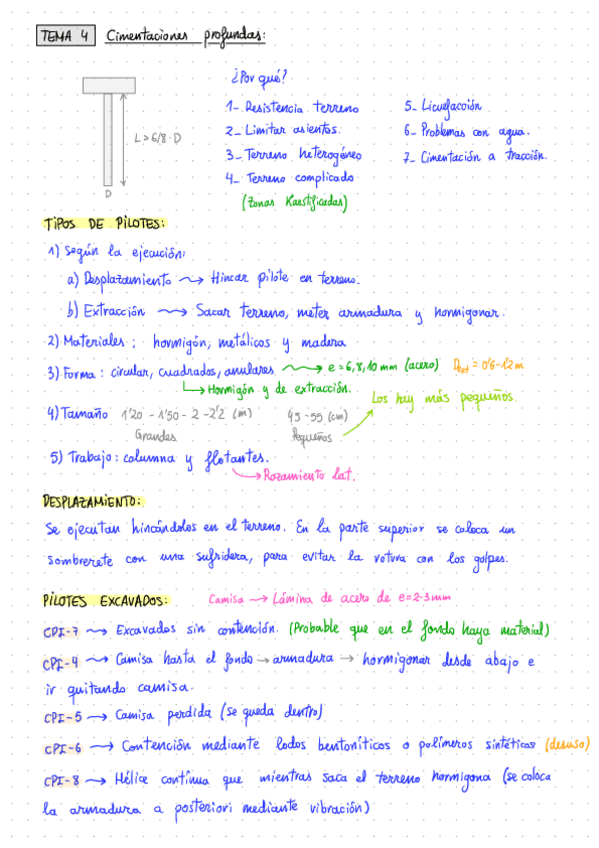 TEMA 4 Cimentaciones profundas:
¿Por qué?
1- Resistencia terreno
2- Limitar asientos.
3- Terreno heterogéneo
4- Terreno complicado
(Zonas Karstificadas)
5- Licuefacción
6- Problemas con agua.
7- Cimentación a tracción.
L > 6/8 · D
D
TIPOS DE PILOTES:
1) Según la ejecución:
a) Desplazamiento → Hincar pilote en terreno.
b) Extracción → Sacar terreno, meter armadura y hormigonar.
2) Materiales: hormigón, metálicos y madera
3) Forma: circular, cuadrados, anulares → e = 6, 8, 10 mm (acero) Dext = 0'6-1'2 m
→ Hormigón y de extracción.
4) Tamaño 1'20 - 1'50 - 2 - 2'2 (m) 45 - 55 (cm) Los hay más pequeños.
Grandes Pequeños
5) Trabajo: columna y flotantes.
→ Rozamiento lat.
DESPLAZAMIENTO:
Se ejecutan hincándolos en el terreno. En la parte superior se coloca un
sombrerete con una sufridera, para evitar la rotura con los golpes.
PILOTES EXCAVADOS: Camisa → Lámina de acero de e=2-3mm
CPI-7 → Excavados sin contención. (Probable que en el fondo haya material)
CPI-4 → Camisa hasta el fondo → armadura → hormigonar desde abajo e
ir quitando camisa.
CPI-5 → Camisa perdida (se queda dentro)
CPI-6 → Contención mediante lodos bentoníticos o polímeros sintéticos (desuso)
CPI-8 → Hélice contínua que mientras saca el terreno hormigona (se coloca
la armadura a posteriori mediante vibración)